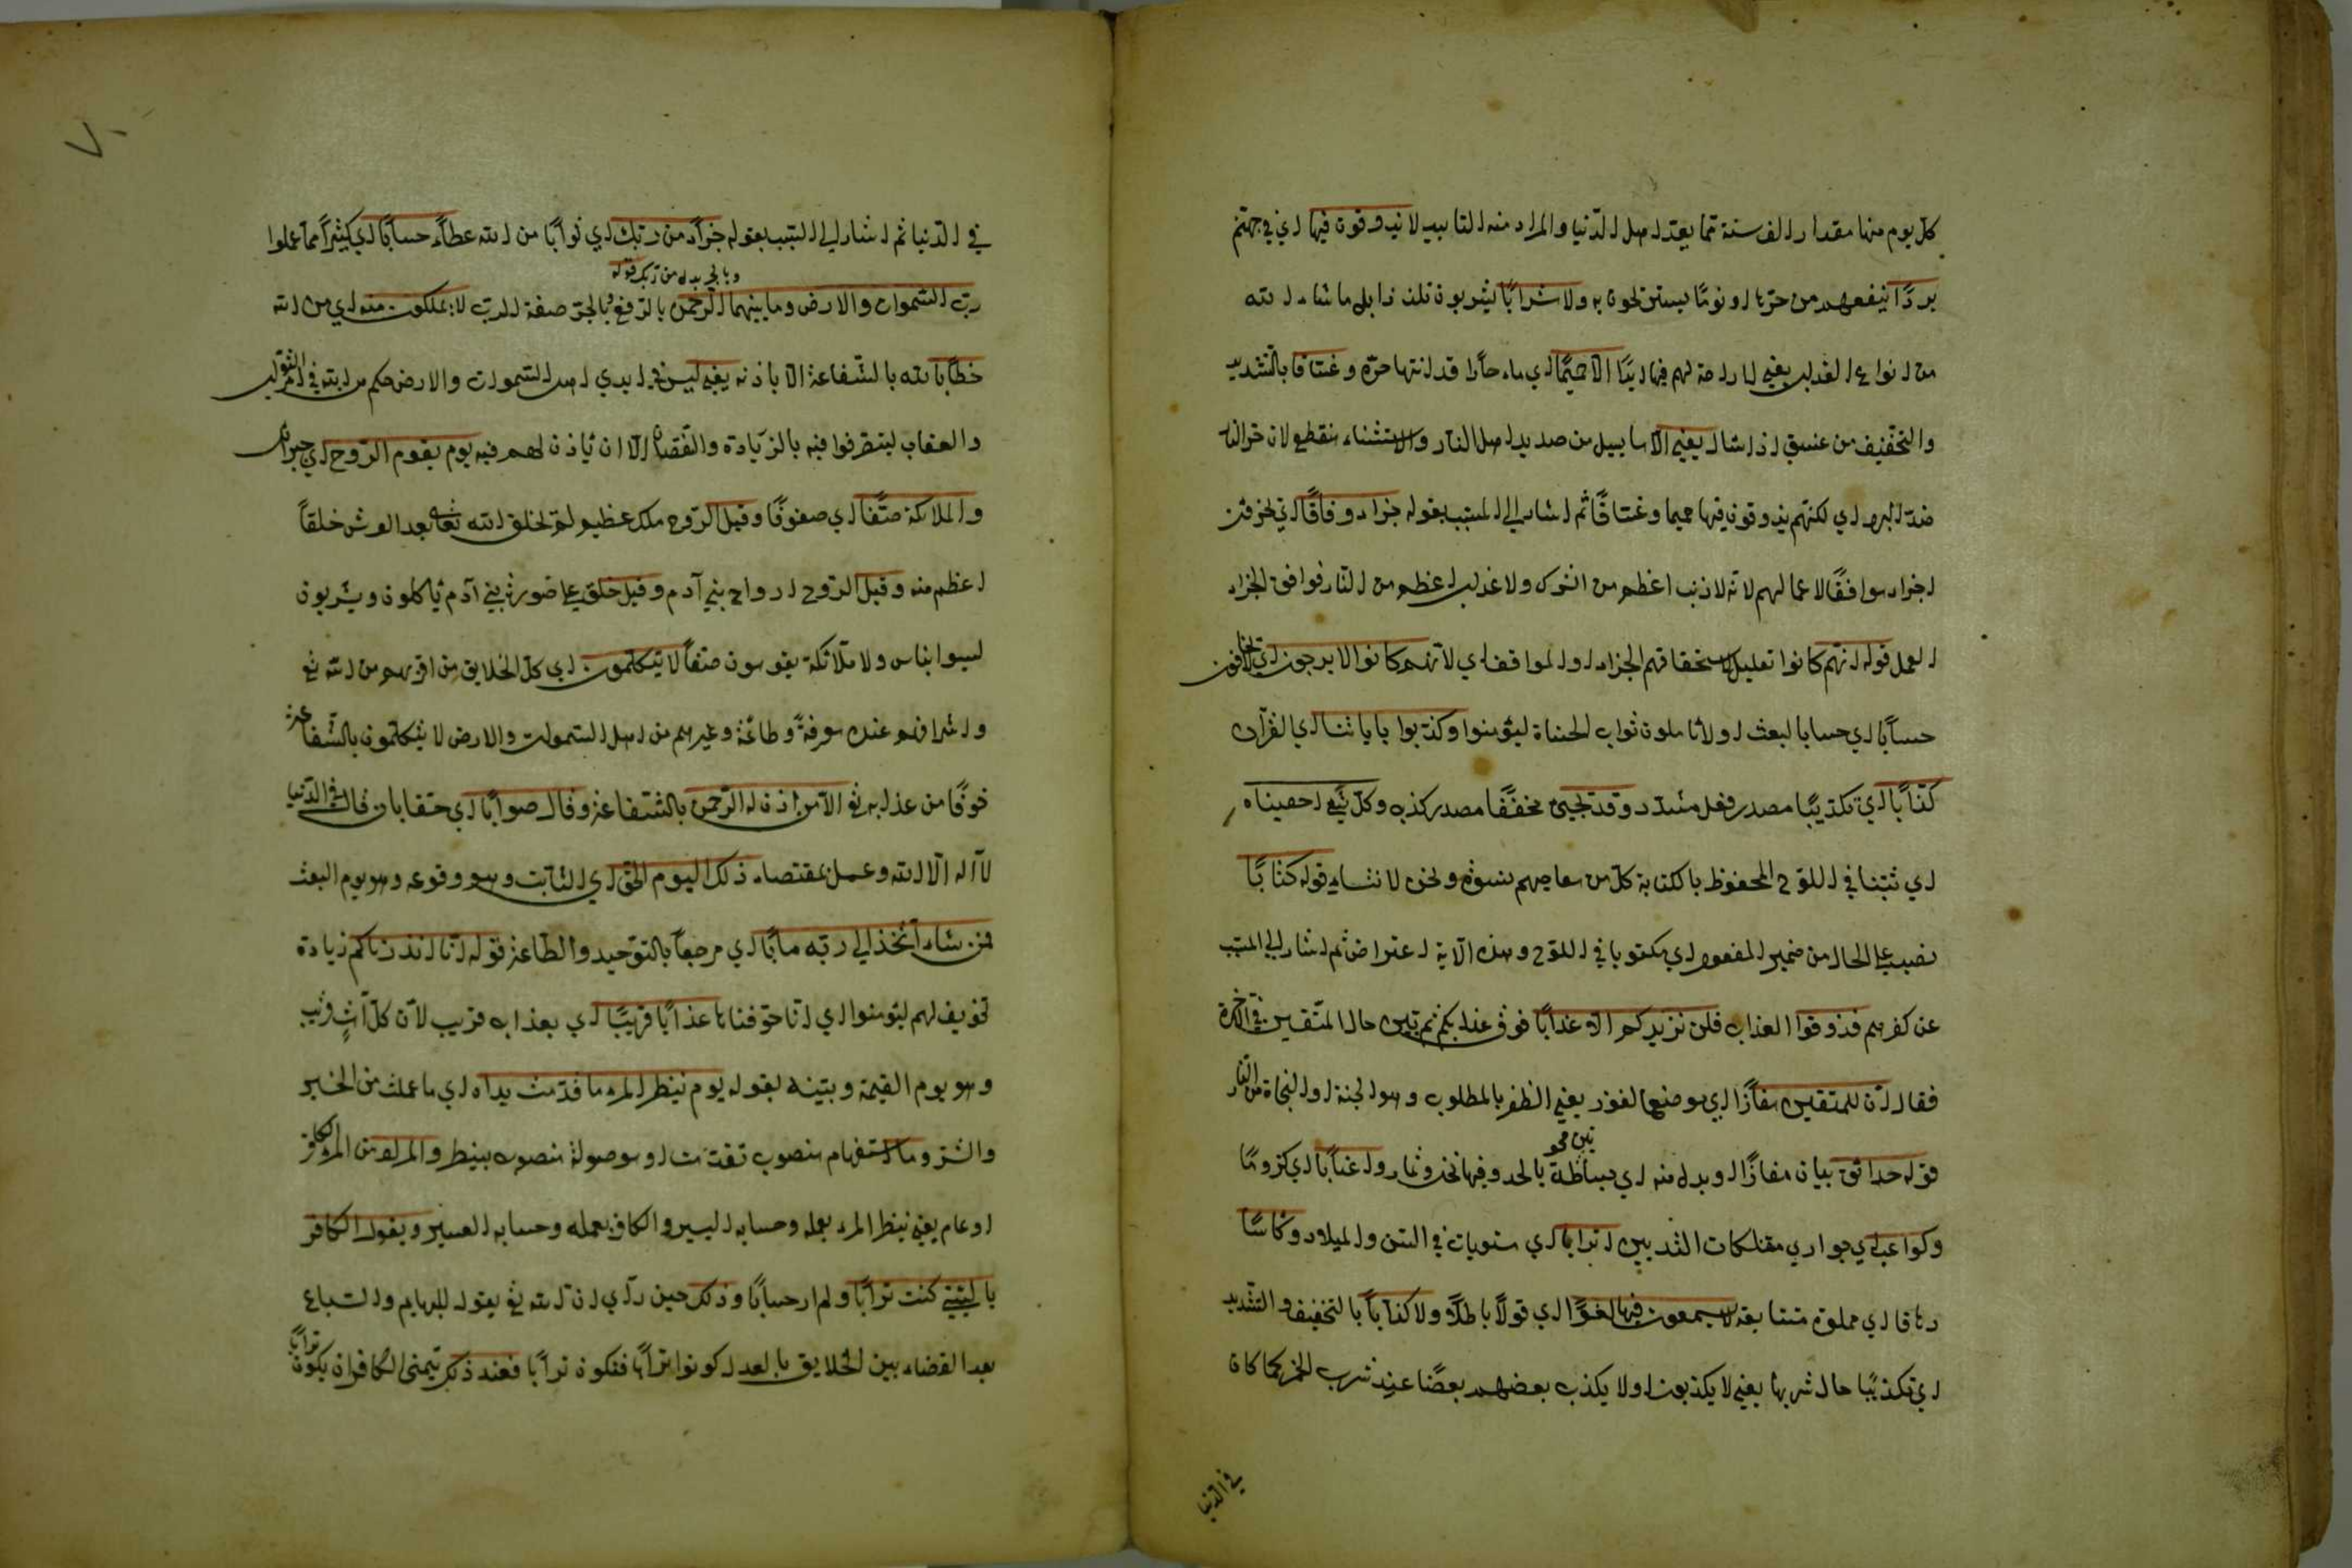 كل يوم منها مقدار الف سنة مما يعد اهل الدنيا والمراد منه التابيد لا يذوقون فيها اي في جهنم
بردًا ينفعهم من حرها او نومًا يستريحون به ولا شرابًا يشربون تلذذا بل ما شاء الله
من انواع العذاب يعني لا راحة لهم فيها ابدًا الا حميمًا اي ماء حارًا قد انتها حره وغساقا بالتشديد
والتخفيف من غسق اذا سال يعني الا ما يسيل من صديد اهل النار والاستثناء منقطع لان حر النار
ضد البرد اي لكنهم يذوقون فيها حميما وغساقًا ثم اشار الى السبب بقوله جزاء وفاقًا اي تجزون
اجزاء موافقًا لاعمالهم لانه لا ذنب اعظم من الشرك ولا عذاب اعظم من النار فوافق الجزاء
العمل قوله انهم كانوا تعليل لاستحقاقهم الجزاء الموافق اي لانهم كانوا لا يرجون اي لا يخافون
حسابًا اي حسابا لبعث او لا يأملون ثواب الحسنات ليؤمنوا وكذبوا باياتنا اي القرآن
كذابًا اي تكذيبًا مصدر فعل مشدد وقد تجيئ مخففًا مصدر كذب وكل شيء احصيناه
اي ثبتنا في اللوح المحفوظ بالكتابة كل من معاصيهم ونحن لا ننساه قوله كتابًا
نصب على الحال من ضمير المفعول اي مكتوبا في اللوح وهذه الآية اعتراض ثم اشار الى المسبب
عن كفرهم فذوقوا العذاب فلن نزيدكم الا عذابًا فوق عذابكم ثم تبين حال المتقين في الآخرة
فقال ان للمتقين مفازًا اي موضع الفوز يعني الظفر بالمطلوب وهو الجنة او النجاة من النار
قوله حدائق بيان مفازًا او بدل منه اي بساتين محوطة بالحد وفيها نخل وثمار واعنابًا اي كرومًا
وكواعب اي جواري مفلكات الثديين اترابا اي مستويات في السن والميلاد وكاسًا
دهاقا اي مملوة متتابعة لا يسمعون فيها لغوًا اي قولًا باطلًا ولا كذابًا بالتخفيف والتشديد
اي تكذيبًا حال شربها يعني لا يكذبون ولا يكذب بعضهم بعضًا عند شرب الخمر كما كان
في الدنيا
٧٠
في الدنيا ثم اشار الى السبب بقوله جزاء من ربك اي ثوابًا من الله عطاءً حسابًا اي كثيرًا مما عملوا
وبالجر بدل من ربك قوله
رب السموات والارض وما بينهما الرحمن بالرفع وبالجر صفة الرب لا يملكون منه اي من الله
خطابًا بالله بالشفاعة الا باذنه يعني ليس في ايدي اهل السموات والارض حكم من الله في امر الثواب
والعقاب ليتصرفوا فيه بالزيادة والنقصان الا ان يأذن لهم فيه يوم يقوم الروح اي جبرائل
والملائكة صفًا اي صفوفًا وقيل الروح ملك عظيم لم يخلق الله تعالى بعد العرش خلقاً
اعظم منه وقيل الروح ارواح بني آدم وقيل خلق على صورة بني آدم يأكلون ويشربون
ليسوا بناس ولا ملائكة يقومون صفاً لا يتكلمون اي كل الخلايق من اقربهم من الله تع
واشرافهم عنده معرفة وطاعة وغيرهم من اهل السموات والارض لا يتكلمون بالشفاعة
خوفًا من عذابه تع الا من اذن له الرحمن بالشفاعة وقال صوابًا اي حقا بان قال في الدنيا
لا اله الا الله وعمل بمقتضاه ذلك اليوم الحق اي الثابت وهو وقوعه وهو يوم البعث
فمن شاء اتخذ الى ربه مآبًا اي مرجعاً بالتوحيد والطاعة قوله انا انذرناكم زيادة
تخويف لهم ليؤمنوا اي انا خوفناكم عذابًا قريبًا اي بعذاب قريب لان كل آت قريب
وهو يوم القيمة وبينه بقوله يوم ينظر المرء ما قدمت يداه اي ما عملت من الخير
والشر وما استفهام منصوب بقدمت او موصولة منصوب بينظر والمراد من المرء الكافر
او عام يعني ينظر المرء بعمله وحسابه اليسير والكافر بعمله وحسابه العسير ويقول الكافر
يا ليتني كنت ترابًا ولم ار حسابًا وذلك حين رأى ان الله تع يقول للبهايم والسباع
بعد القضاء بين الخلايق بالعدل كونوا ترابًا فتكون ترابًا فعند ذلك يتمنى الكافر ان يكون ترابًا